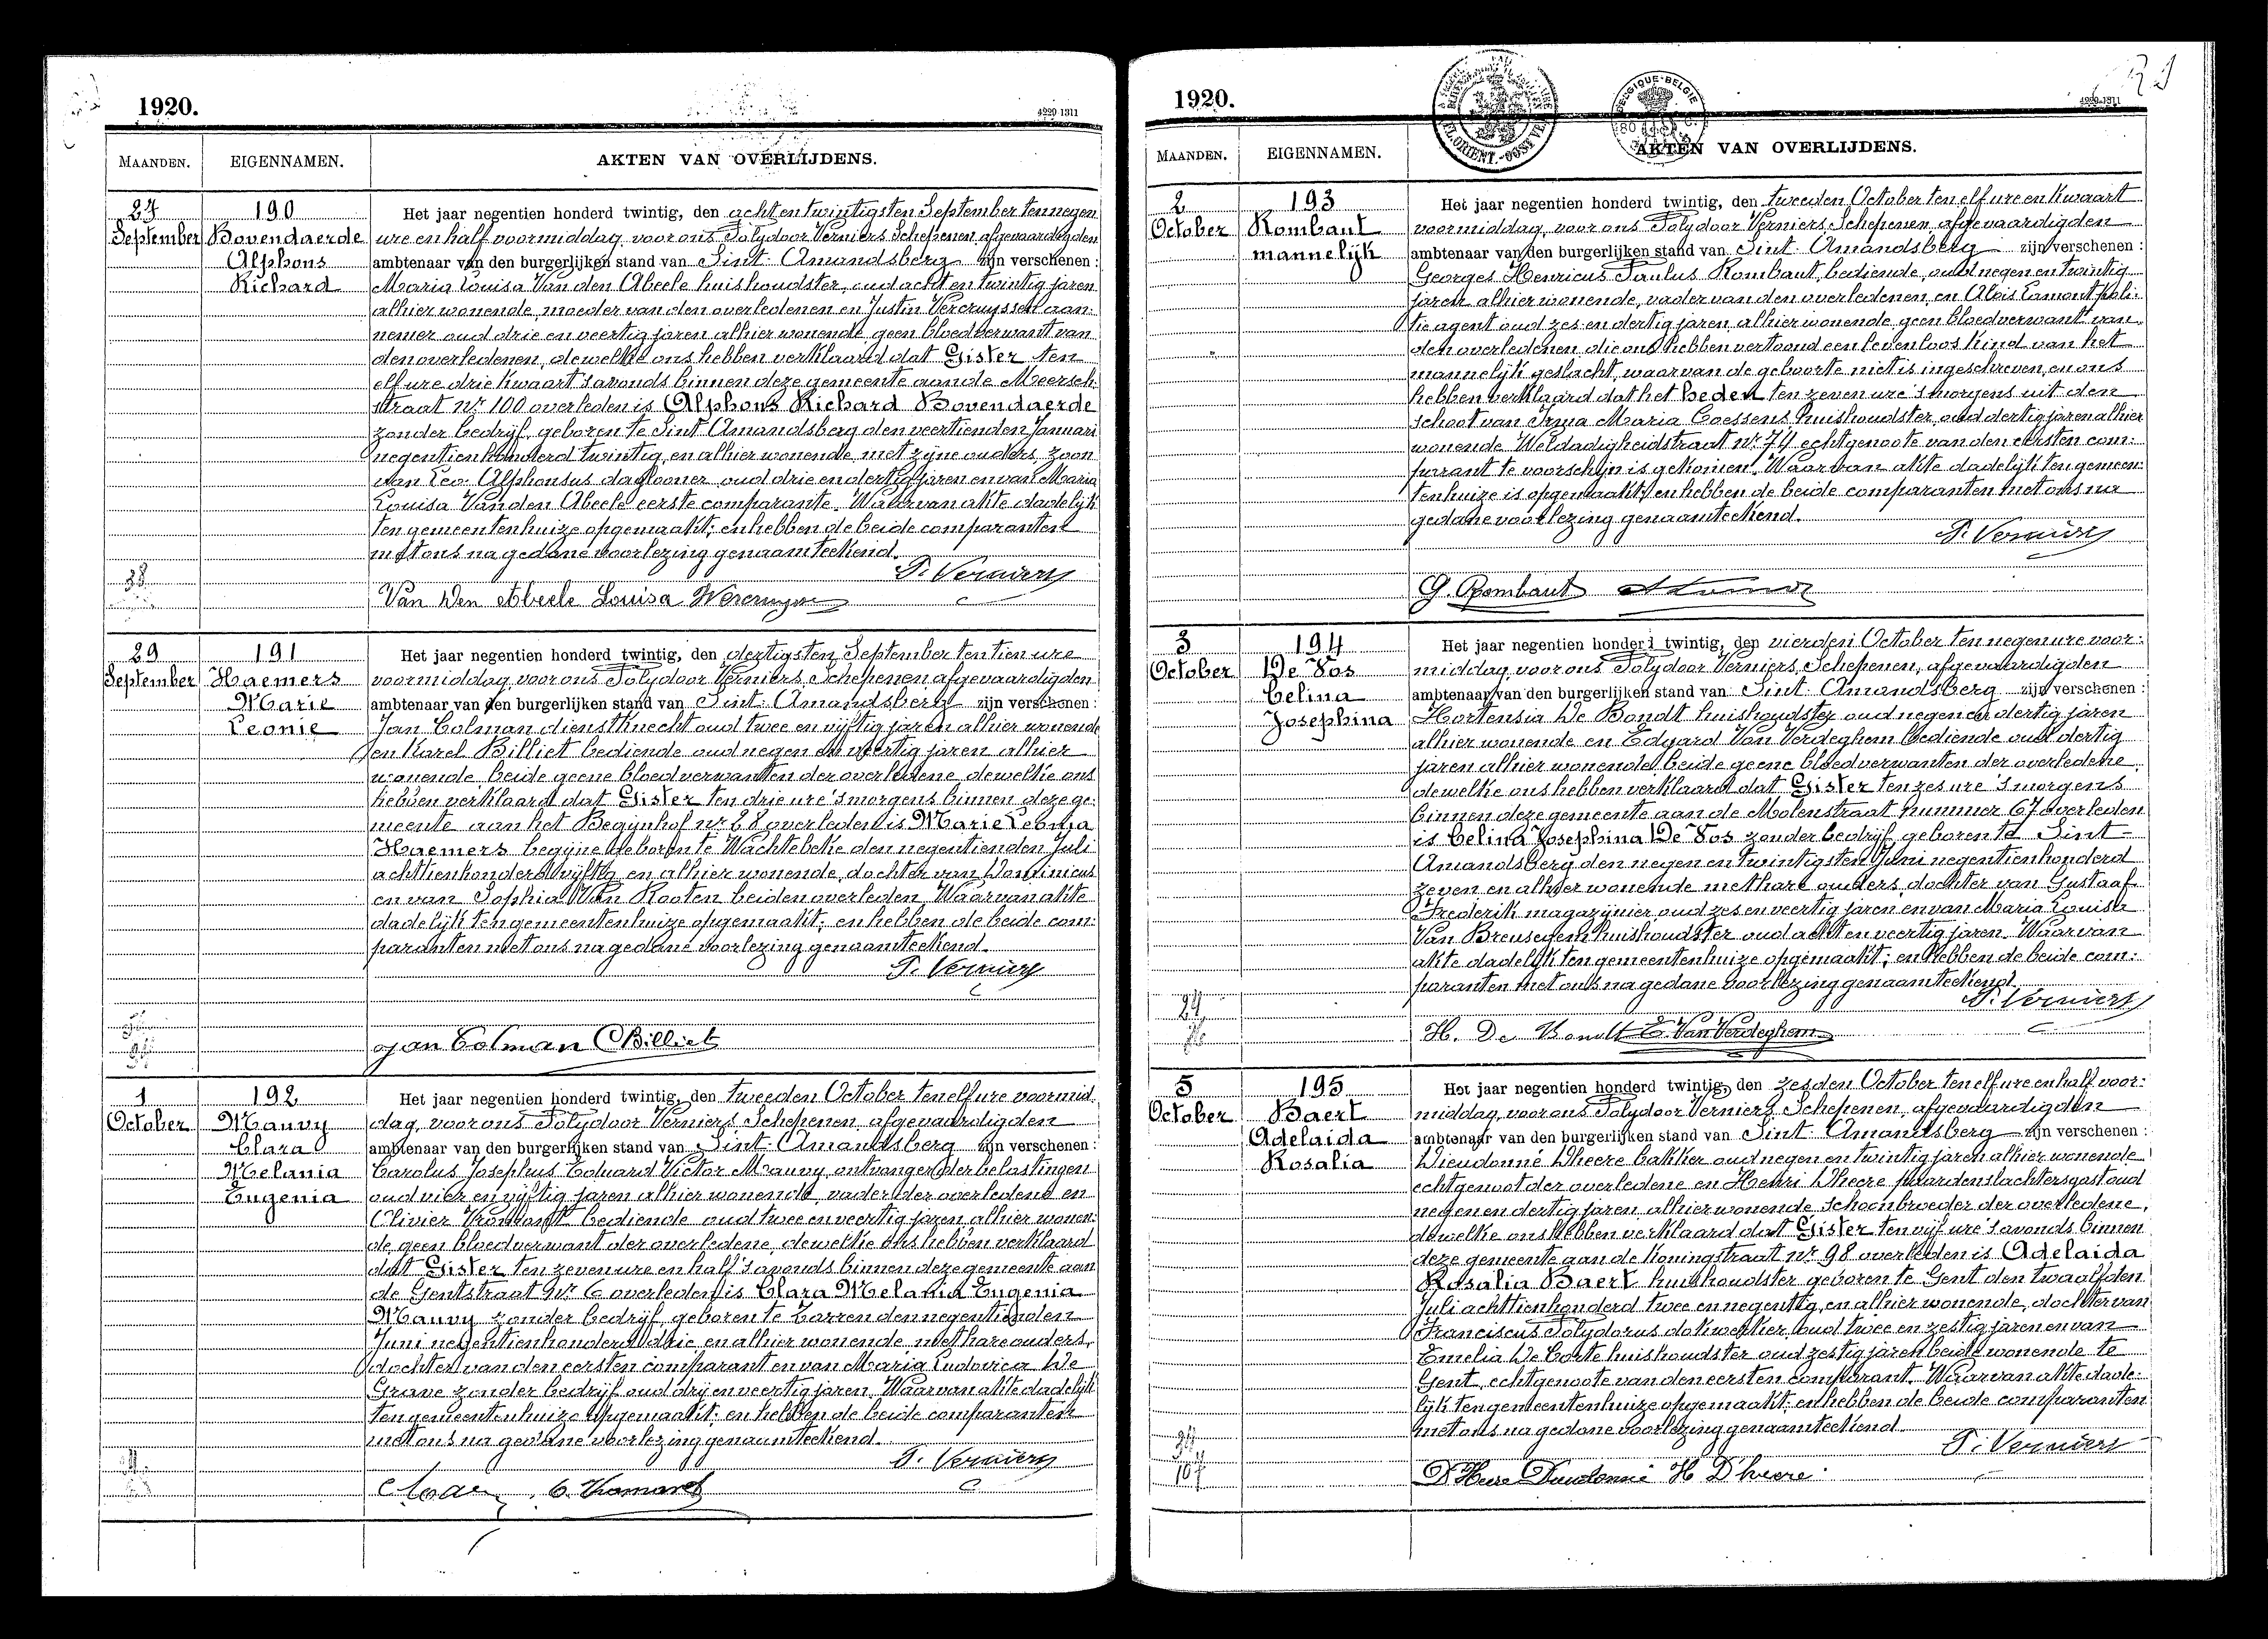 1920.
4229-1311
MAANDEN.
EIGENNAMEN.
AKTEN VAN OVERLIJDENS.
27
September
190
Bovendaerde
Alphons
Richard
Het jaar negentien honderd twintig, den acht en twintigsten September ten negen
ure en half voormiddag, voor ons Polydoor Verniers Schepenen afgevaardigden
ambtenaar van den burgerlijken stand van Sint-Amandsberg zijn verschenen :
Maria Louisa Van den Abeele huishoudster, oud acht en twintig jaren
alhier wonende, moeder van den overledenen en Justin Vercruyssen aan-
nemer oud drie en veertig jaren alhier wonende geen bloedverwant van
den overledenen, dewelke ons hebben verklaard dat Gister ten
elf ure drie kwaart 's avonds binnen deze gemeente aan de Meersch-
straat nr 100 overleden is Alphons Richard Bovendaerde
zonder bedrijf, geboren te Sint Amandsberg den veertienden Januari
negentien honderd twintig, en alhier wonende met zijne ouders, zoon
van Leo Alphonsus daglooner oud drie en dertig jaren en van Maria
Louisa Van den Abeele eerste comparante. Waarvan akte dadelijk
ten gemeentenhuize opgemaakt; en hebben de beide comparanten
met ons na gedane voorlezing genaamteekend.
P. Verniers
Van Den Abeele Louisa
29
September
191
Haemers
Marie
Leonie
Het jaar negentien honderd twintig, den dertigsten September ten tien ure
voormiddag, voor ons Polydoor Verniers, Schepenen afgevaardigden
ambtenaar van den burgerlijken stand van Sint-Amandsberg zijn verschenen :
Jan Colman dienstknecht oud twee en vijftig jaren alhier wonende
en Karel Billiet bediende oud negen en veertig jaren alhier
wonende beide geene bloedverwanten der overledene, dewelke ons
hebben verklaard dat Gister ten drie ure 's morgens binnen deze ge-
meente aan het Begijnhof nr 28 overleden is Marie Leonia
Haemers begijne geboren te Wachtebeke den negentienden Juli
achttienhonderd vijftig en alhier wonende, dochter van Dominicus
en van Sophia Van Rooten beiden overleden. Waarvan akte
dadelijk ten gemeentenhuize opgemaakt; en hebben de beide com-
paranten met ons na gedane voorlezing genaamteekend.
P. Verniers
Jan Colman C Billiet
1
October
192
Mauvy
Clara
Melania
Eugenia
Het jaar negentien honderd twintig, den tweeden October ten elf ure voormid-
dag, voor ons Polydoor Verniers Schepenen afgevaardigden
ambtenaar van den burgerlijken stand van Sint-Amandsberg zijn verschenen :
Carolus Josephus Eduard Victor Mauvy, ontvanger der belastingen
oud vier en vijftig jaren alhier wonende, vader der overledene en
Olivier bediende oud twee en veertig jaren alhier wonen-
de geen bloedverwant der overledene, dewelke ons hebben verklaard
dat Gister ten zeven ure en half 's avonds binnen deze gemeente aan
de Gentstraat Nr 6 overleden is Clara Melania Eugenia
Mauvy zonder bedrijf geboren te Zarren den negentienden
Juni negentienhonderd drie en alhier wonende met hare ouders,
dochter van den eersten comparant en van Maria Ludovica De
Grave zonder bedrijf oud drij en veertig jaren. Waarvan akte dadelijk
ten gemeentenhuize opgemaakt; en hebben de beide comparanten
met ons na gedane voorlezing genaamteekend.
P. Verniers
1920.
4229-1311
BELGIQUE-BELGIE
MAANDEN.
EIGENNAMEN.
AKTEN VAN OVERLIJDENS.
2
October
193
Rombaut
mannelijk
Het jaar negentien honderd twintig, den tweeden October ten elf ure en kwaart
voormiddag, voor ons Polydoor Verniers Schepenen, afgevaardigden
ambtenaar van den burgerlijken stand van Sint-Amandsberg zijn verschenen :
Georges Henricus Paulus Rombaut, bediende, oud negen en twintig
jaren alhier wonende, vader van den overledenen, en Aloïs Lamont poli-
tie agent oud zes en dertig jaren, alhier wonende geen bloedverwant van
den overledenen die ons hebben vertoond een levenloos kind van het
mannelijk geslacht, waarvan de geboorte niet is ingeschreven, en ons
hebben verklaard dat het heden ten zeven ure 's morgens uit den
schoot van Irma Maria Coessens huishoudster, oud dertig jaren alhier
wonende Weldadigheidstraat nr 74 echtgenoote van den eersten com-
parant te voorschijn is gekomen. Waarvan akte dadelijk ten gemeen-
tenhuize is opgemaakt; en hebben de beide comparanten met ons na
gedane voorlezing genaamteekend.
P. Verniers
G. Rombaut
3
October
194
De Vos
Celina
Josephina
Het jaar negentien honderd twintig, den vierden October ten negen ure voor-
middag, voor ons Polydoor Verniers, Schepenen, afgevaardigden
ambtenaar van den burgerlijken stand van Sint-Amandsberg zijn verschenen :
Hortensia De Bondt huishoudster oud negen en dertig jaren
alhier wonende en Edgard Van Verdeghem bediende oud dertig
jaren alhier wonende beide geene bloedverwanten der overledene,
dewelke ons hebben verklaard dat Gister ten zes ure 's morgens
binnen deze gemeente aan de Molenstraat nummer 67 overleden
is Celina Josephina De Vos zonder bedrijf geboren te Sint-
Amandsberg den negen en twintigsten Juni negentienhonderd
zeven en alhier wonende met hare ouders, dochter van Gustaaf
Frederik magazijnier oud zes en veertig jaren en van Maria Louisa
Van Breusegem huishoudster oud acht en veertig jaren. Waarvan
akte dadelijk ten gemeentenhuize opgemaakt; en hebben de beide com-
paranten met ons na gedane voorlezing genaamteekend.
P. Verniers
H. De Bondt E. Van Verdeghem
5
October
195
Baert
Adelaida
Rosalia
Het jaar negentien honderd twintig, den zesden October ten elf ure en half voor-
middag, voor ons Polydoor Verniers, Schepenen, afgevaardigden
ambtenaar van den burgerlijken stand van Sint-Amandsberg zijn verschenen :
Dieudonné Dheere bakker oud negen en twintig jaren alhier wonende
echtgenoot der overledene en Henri Dheere paardenslachtersgast oud
negen en dertig jaren alhier wonende schoonbroeder der overledene,
dewelke ons hebben verklaard dat Gister ten vijf ure 's avonds binnen
deze gemeente aan de Koningstraat nr 98 overleden is Adelaida
Rosalia Baert huishoudster geboren te Gent den twaalfden
Juli achttienhonderd twee en negentig, en alhier wonende, dochter van
Franciscus Polydorus dokwerker oud twee en zestig jaren en van
Emelia De Corte huishoudster oud zestig jaren beide wonende te
Gent, echtgenoote van den eersten comparant. Waarvan akte dade-
lijk ten gemeentenhuize opgemaakt; en hebben de beide comparanten
met ons na gedane voorlezing genaamteekend.
P. Verniers
D'Heere Dieudonné H Dheere